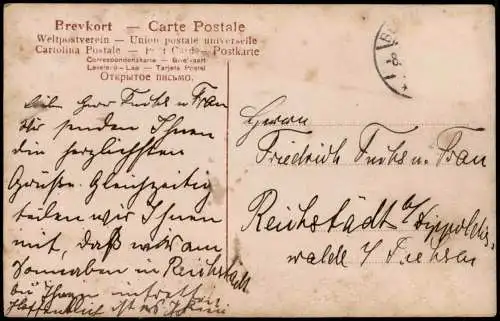 Brevkort — Carte Postale
Weltpostverein — Union postale universelle
Cartolina Postale — Post Card — Postkarte
Correspondenzkarte — Briefkaart
Levelező-Lap — Tarjeta Postal
Открытое письмо.
Lieb Herr Fuchs u Frau
Wir senden Ihnen
die herzlichsten
Grüße. Gleichzeitig
teilen wir Ihnen
mit, daß wir am
Sonnabend in Reichstädt
bei Ihnen eintreffen
Hoffentlich ist es Ihnen
Herrn
Friedrich Fuchs u. Frau
Reichstädt b/ Dippoldis-
walde i/ Sachsen